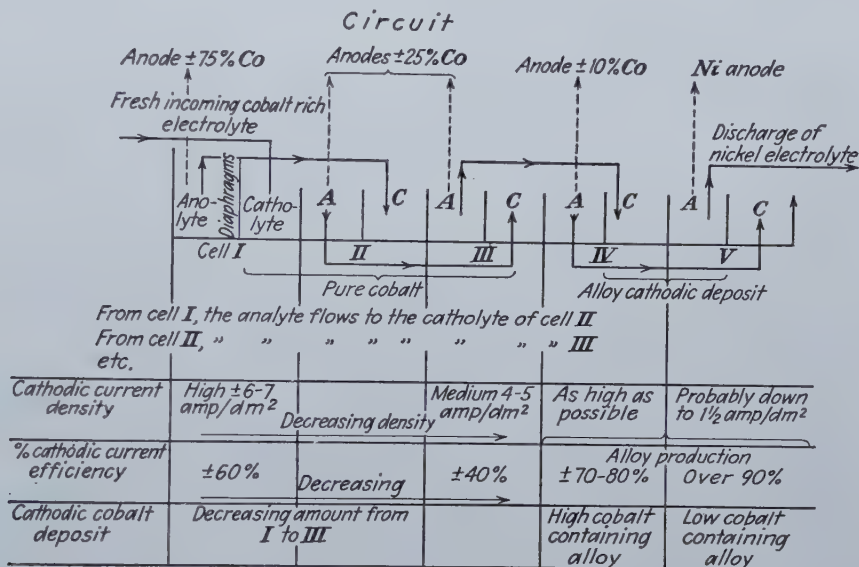 Circuit
Anode ±75% Co
Anodes ±25% Co
Anode ±10% Co
Ni anode
Fresh incoming cobalt rich
electrolyte
Discharge of
nickel electrolyte
Ano-
lyte
Diaphragms
Catho-
lyte
A
C
A
C
A
C
A
C
Cell I
II
III
IV
V
Pure cobalt
Alloy cathodic deposit
From cell I, the analyte flows to the catholyte of cell II
From cell II, " " " " " " " " III
etc.
Cathodic current
density
High ±6-7
amp/dm²
Decreasing density
Medium 4-5
amp/dm²
As high as
possible
Probably down
to 1½ amp/dm²
% cathodic current
efficiency
±60%
Decreasing
±40%
Alloy production
±70-80%
Over 90%
Cathodic cobalt
deposit
Decreasing amount from
I to III
High cobalt
containing
alloy
Low cobalt
containing
alloy